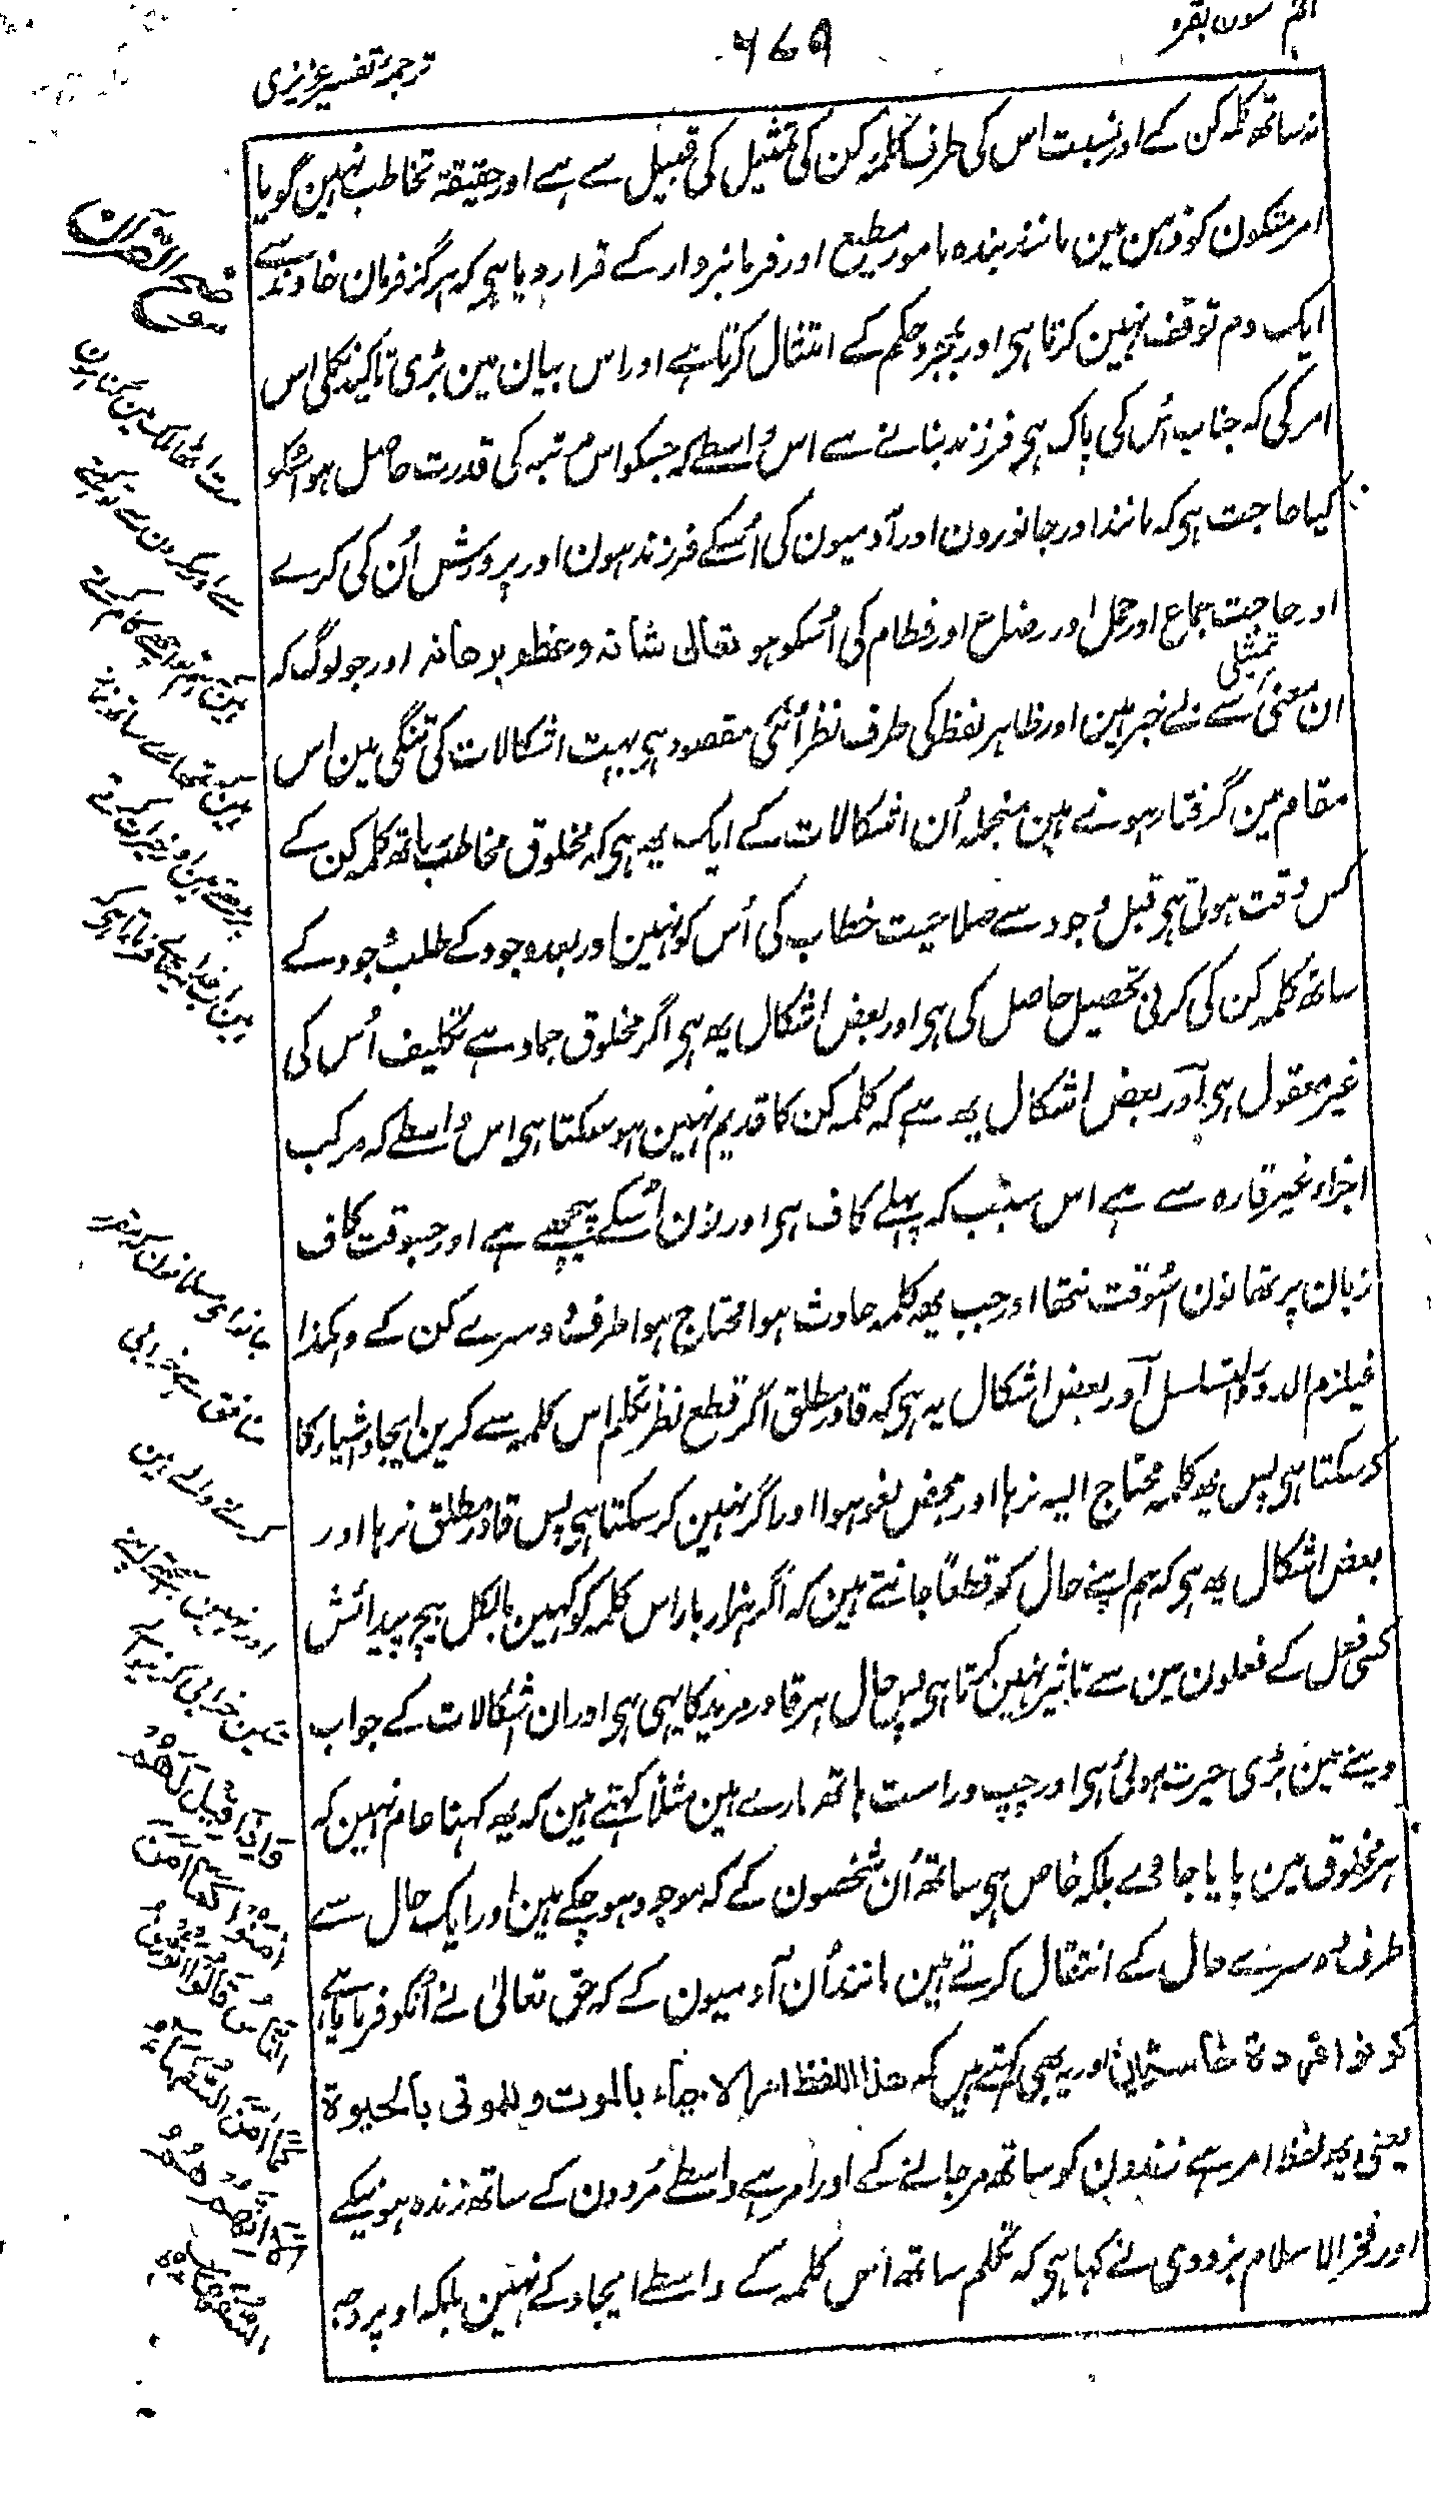 الم سورہ بقرہ
۷۶۹
ترجمۂ تفسیر عزیزی
نہ ساتھ کلمہ کن کے اور نسبت اس کی طرف کلمہ کن کی تمثیل کی قبیل سے ہے اور حقیقۃ تخاطب نہین گویا
امر متکون کو ذہن مین مانند بندہ مامور مطیع اور فرمانبردار کے قرار دیا ہی کہ ہرگز فرمان خاوند سے
ایک دم توقف نہین کرتا ہی اور بمجرد حکم کے امتثال کرتا ہے اور اس بیان مین بڑی تاکید نکلی اس
امر کی کہ جناب اُس کی پاک ہی فرزند بنانے سے اس واسطے کہ جسکو اس مرتبہ کی قدرت حاصل ہو اسکو
کیا حاجت ہی کہ مانند اور جانورون اور آدمیون کی اُسکے فرزند ہون اور پرورش اُن کی کرے
اور حاجت جماع اور حمل اور رضاع اور فطام کی اُسکو ہو تعالی شانہ وعظم برھانہ اور جو لوگ کہ
ان معنی تمثیلی سے بے خبر ہین اور ظاہر لفظ کی طرف نظر اُنکی مقصود ہی بہت اشکالات کی تنگی مین اس
مقام مین گرفتار ہوتے ہین منجملہ اُن اشکالات کے ایک یھ ہی کہ مخلوق مخاطب ساتھ کلمہ کن کے
کس وقت ہوتی ہی قبل وجود سے صلاحیت خطاب کی اُس کو نہین اور بعد وجود کے طلب وجود کے
ساتھ کلمہ کن کی کرنی تحصیل حاصل کی ہی اور بعض اشکال یھ ہی اگر مخلوق جماد ہے تکلیف اُس کی
غیر معقول ہی اور بعض اشکال یھ ہے کہ کلمہ کن کا قدیم نہین ہو سکتا ہی اس واسطے کہ مرکب
اجزاء غیر قارہ سے ہے اس سبب کہ پہلے کاف ہی اور نون اُسکے پیچھے ہے اور جسوقت کاف
زبان پر تھا نون اُسوقت نتھا اور جب یھ کلمہ حادث ہوا محتاج ہوا طرف دوسرے کن کے وہکذا
فیلزم الدور والتسلسل اور بعض اشکال یہ ہی کہ قادر مطلق اگر قطع نظر تکلم اس کلمہ سے کرین ایجاد اشیاء کا
کر سکتا ہی پس یھ کلمہ محتاج الیہ نرہا اور محض لغو ہوا اور اگر نہین کر سکتا ہی پس قادر مطلق نرہا اور
بعض اشکال یھ ہی کہ ہم اپنے حال کو قطعاً جانتے ہین کہ اگر ہزار بار اس کلمہ کو کہین بالکل بیچ پیدائش
کسی فعل کے فعلون مین سے تاثیر نہین کرتا ہی پس حال ہر قادر مرید کا یہی ہی اور ان اشکالات کے جواب
دینے مین بڑی حیرت ہوئی ہی اور چپ وراست ہاتھ مارے ہین مثلاً کہتے ہین کہ یھ کہنا عام نہین کہ
ہر مخلوق مین پایا جاوے بلکہ خاص ہی ساتھ اُن شخصون کے کہ موجود ہو چکے ہین اور ایک حال سے
طرف دوسرے حال کے انتقال کرتے ہین مانند اُن آدمیون کے کہ حق تعالیٰ نے اُنکو فرمایا ہے
کونوا قردۃ خاسئین اور یہ بھی کہتے ہیں کہ ھذا اللفظ امر للاحیاء بالموت وللموتی بالحیوۃ
یعنی یھ لفظ امر ہے زندون کو ساتھ مرجانے کے اور امر ہے واسطے مُردون کے ساتھ زندہ ہونیکے
اور فخر الاسلام بزدوی نے کہا ہی کہ تکلم ساتھ اس کلمہ کے واسطے ایجاد کے نہین بلکہ اوپر وجہ
وَاِذَا قِيْلَ لَهُمْ
اٰمِنُوْا كَمَا اٰمَنَ
النَّاسُ قَالُوْا اَنُؤْمِنُ
كَمَا اٰمَنَ السُّفَهَاءُ
اَلَا اِنَّهُمْ هُمُ
السُّفَهَاءُ